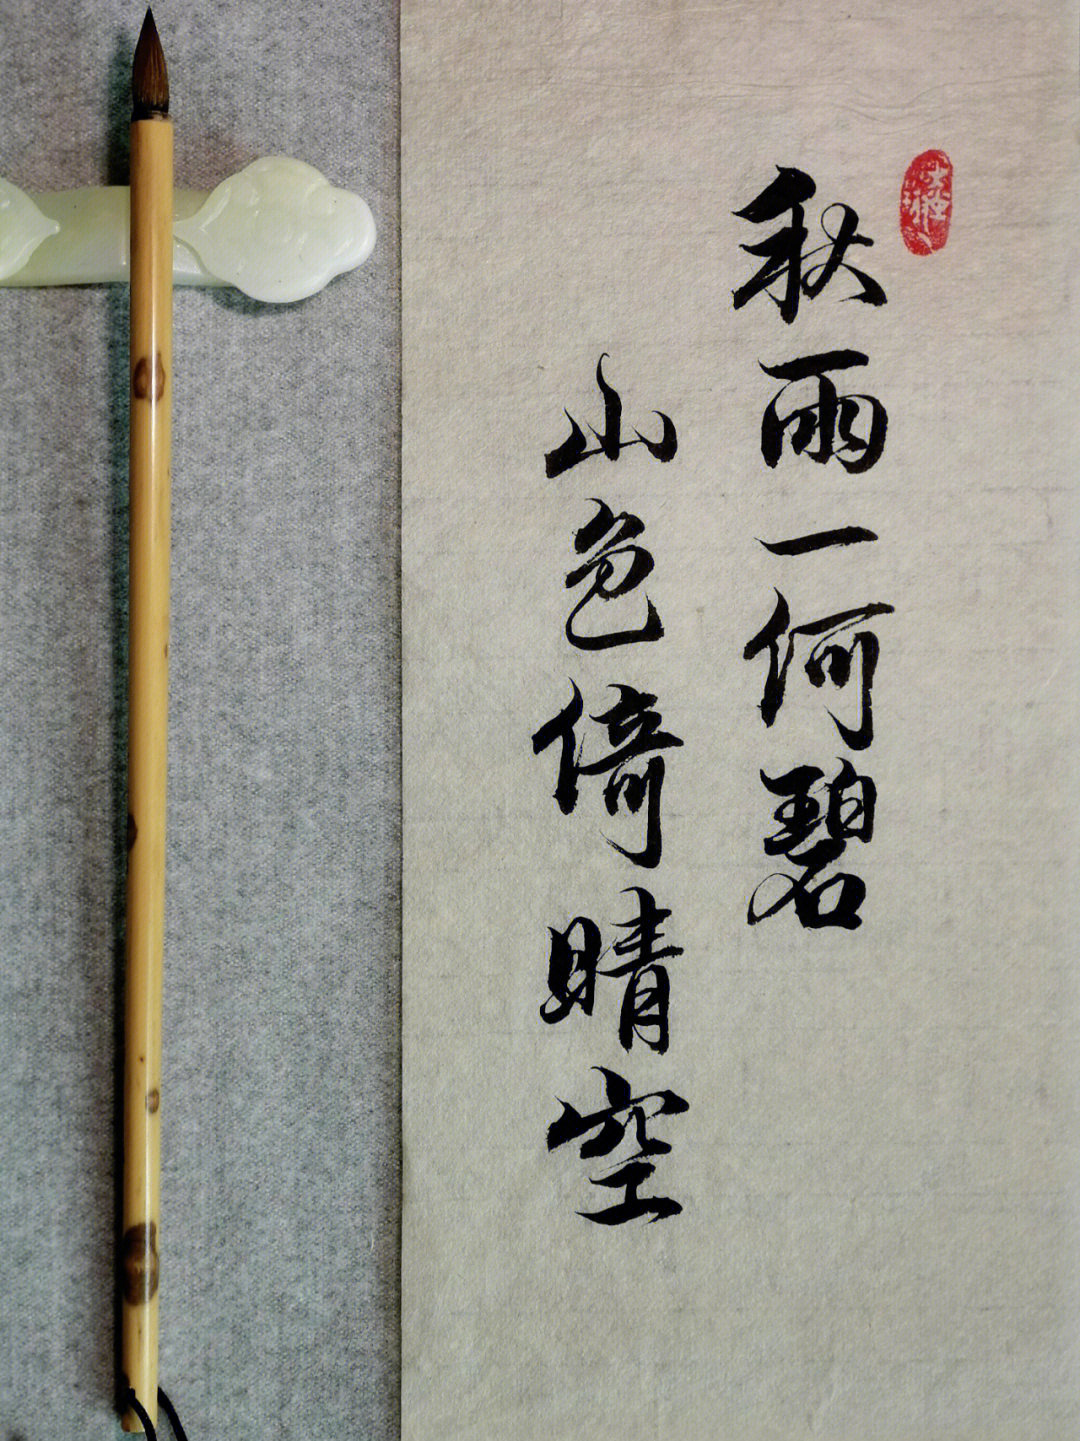 秋雨一何碧
山色倚晴空